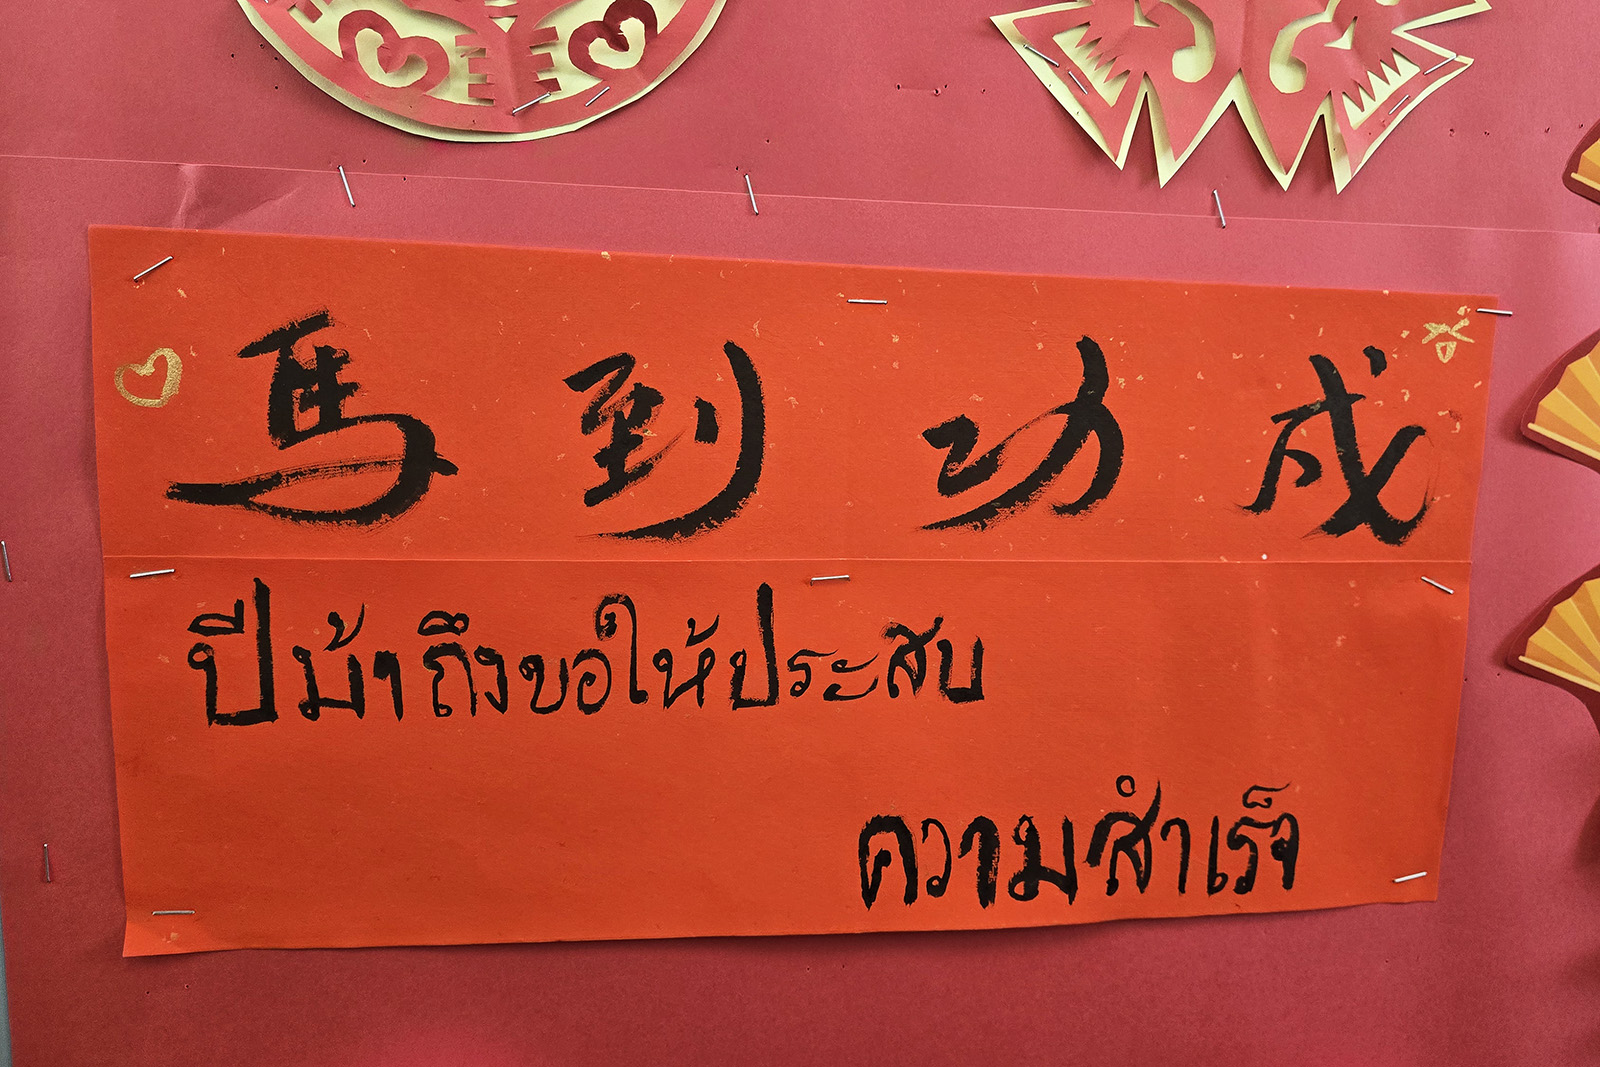 馬到功成
ปีม้าถึงขอให้ประสบ
ความสำเร็จ